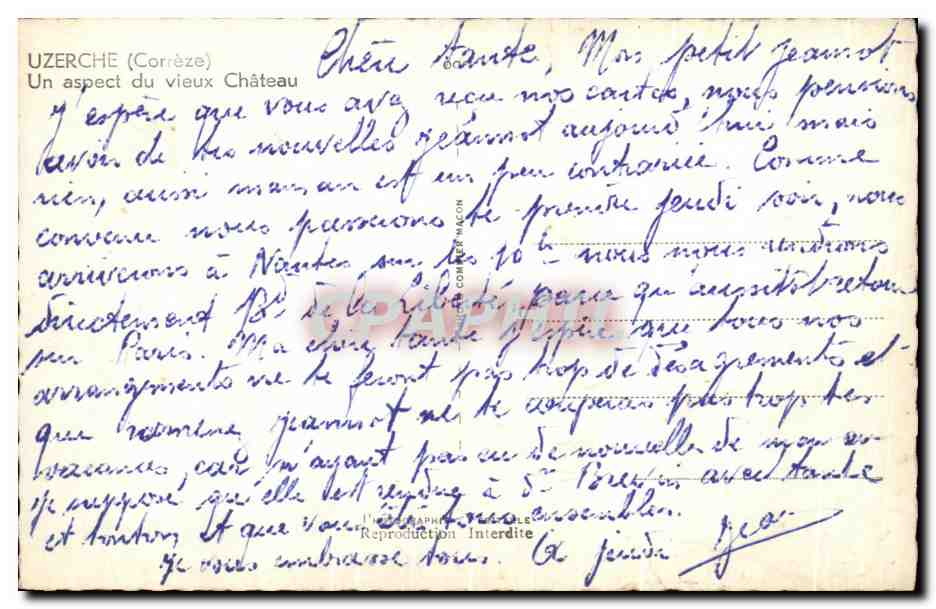 UZERCHE (Corrèze)
Un aspect du vieux Château
Chère tante, Mon petit Jeannot
J'espère que vous avez reçu nos cartes, nous pensions
avoir de tes nouvelles Jeannot aujourd'hui mais
rien, aussi maman est un peu contrariée. Comme
convenu nous passerons te prendre jeudi soir, nous
arriverons à Nantes sur les 10h nous nous rendrons
directement Bd de la Liberté, parce qu'aussitôt retour
sur Paris. Ma chère tante j'espère que tous nos
arrangements ne te feront pas trop de désagréments et
que ramener Jeannot ne te coupera pas trop tes
vacances, car n'ayant pas eu de nouvelle de
je suppose qu'elle est rendue à St Brevin avec tante
et tonton, et que vous êtes tous ensembles.
Je vous embrasse tous. A jeudi
COMBIER MACON
Reproduction Interdite
CPAPHIL